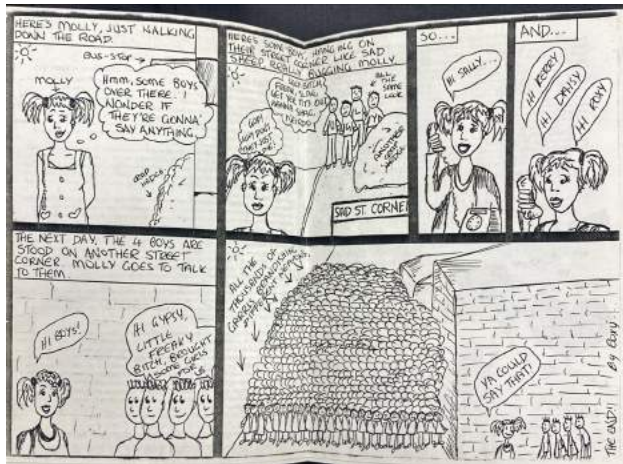 HERE'S MOLLY, JUST WALKING
DOWN THE ROAD.
BUS-STOP
MOLLY
Hmm, SOME BOYS
OVER THERE. I
WONDER IF
THEY'RE GONNA
SAY ANYTHING.
CRAP
HEDGE
HERE'S SOME BOYS HANGING ON
THEIR STREET CORNER LIKE SAD
SHEEP REALLY BUGGING MOLLY
ALL
THE
SAME
LOOK
ANOTHER
CRAP
HEDGE
SAD ST. CORNER
SO...
HI SALLY...
AND...
HI KERRY
HI DAISY
HI ROXY
THE NEXT DAY, THE 4 BOYS ARE
STOOD ON ANOTHER STREET
CORNER. MOLLY GOES TO TALK
TO THEM
HI BOYS!
HI GYPSY,
LITTLE
FREAKY
BITCH, BROUGHT
SOME GIRLS
FOR US
ALL THE
THOUSANDS OF
GAARLS
DIFFERENT
YA COULD
SAY THAT!
THE END!!